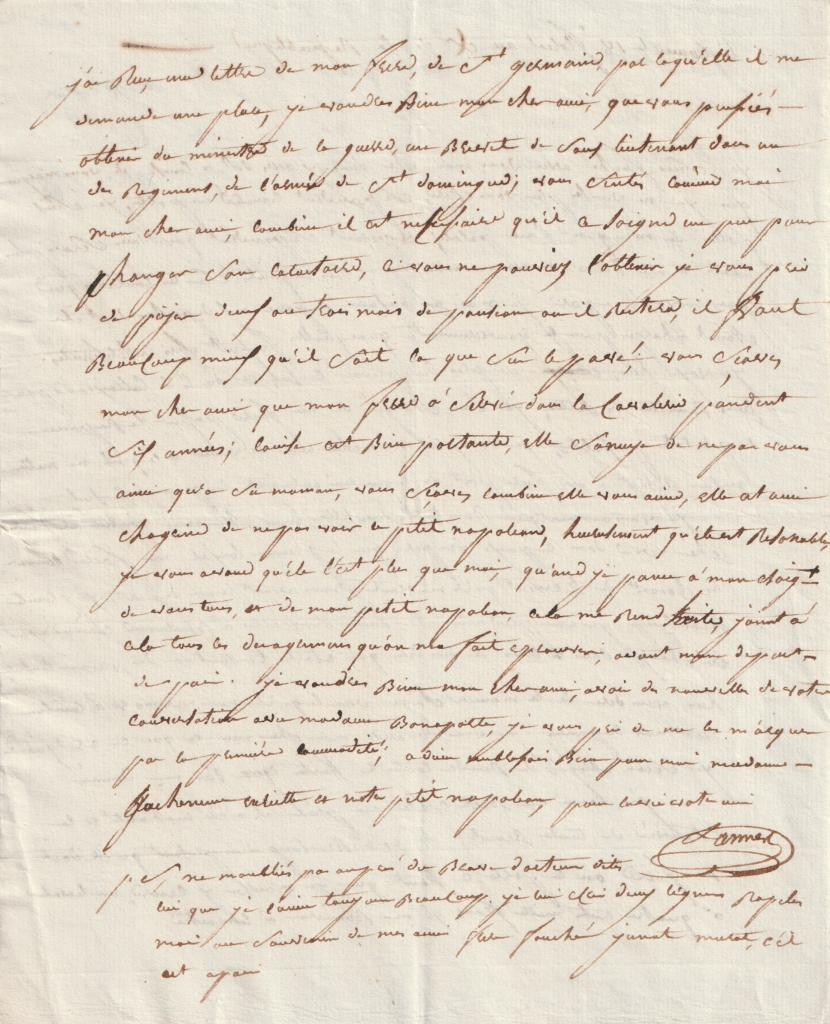 j'ai Reçu, une lettre de mon frere, de St germain, par laqu'elle il me
demande une place, je voudrés Bien mon cher ami, que vous pussiés
obtenir du ministre de la guerre, un Brevet de Sous lieutenant dans un
des Regiment, de l'armée de St domingue; vous Sentés comme moi
mon cher ami, combien il est nessesaire qu'il ce Soigne un peu pour
changer Son caractaire, Ci vous ne pouviez l'obtenir je vous prie
de payer deux ou trois mois de pansion ou il Restera, il Vaut
Beaucoup mieux qu'il Soit la que Sur le pavé; vous Scavés
mon cher ami que mon frere a Servi dans la Cavalerie pandent
Six années; louise est Bien portante, elle S'anuye de ne pas vous
ainsi qu'a Sa maman, vous Scavés combien elle vous aime, elle est aussi
chagrine de ne pas voir le petit napoleon, heuresement qu'ele est Resonable,
je vous avoue qu'ele l'est plus que moi, quand je panse a mon eloig-
de vous tous, et de mon petit napoleon, cela me Rend triste, joint a
cela tous les desagremens qu'on ma fait eprouver, avant mon depart
de paris. je voudrés Bien mon cher ami, avoir des nouvelles de votre
conversation avec madame Bonaparte, je vous prie de me les marquer
par la premiere commodité; adieu millefois Bien pour moi madame
et notre petit napoleon, pour la vie votre ami
Lannes
p S, ne moubliés pas aupres du Brave docteur dits
lui que je l'aime toujour Beaucoup. je lui deux lignes Rapeles
moi au Souvenir de mes amis fouché junot murat, s'il
est a paris